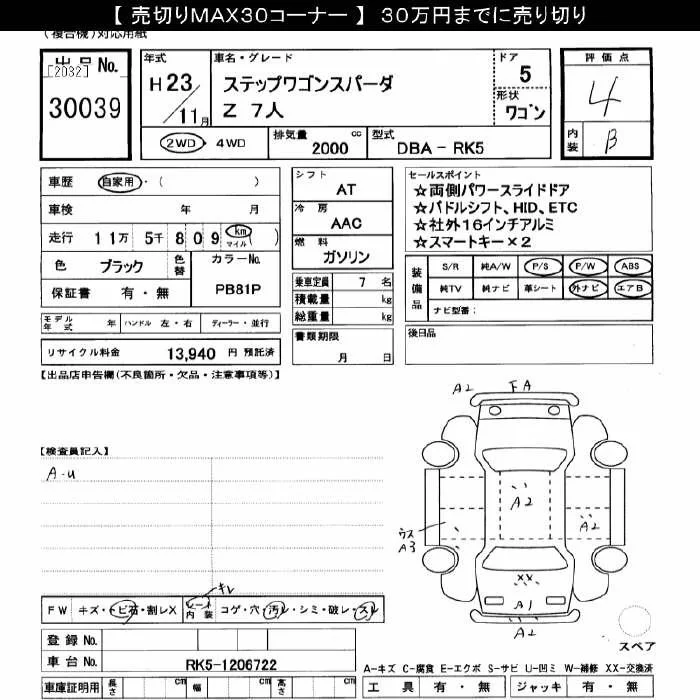 【 売切りMAX30コーナー 】 30万円までに売り切り
(複合機)対応用紙
出品No.
[2032]
30039
年式
H23/11月
車名・グレード
ステップワゴンスパーダ
Z 7人
ドア
5
形状
ワゴン
評価点
4
内装
B
2WD・4WD
排気量
2000 cc
型式
DBA - RK5
車歴 自家用・( )
車検 年 月
走行 11万 5千 809 km マイル ( )
色 ブラック
色替
カラーNo.
PB81P
保証書 有・無
モデル年式 年 ハンドル 左・右 ディーラー・並行
リサイクル料金 13,940 円 預託済
シフト
AT
冷房
AAC
燃料
ガソリン
乗車定員 7 名
積載量 kg
総重量 kg
書類期限
月 日
セールスポイント
☆両側パワースライドドア
☆パドルシフト、HID、ETC
☆社外16インチアルミ
☆スマートキー×2
装備品
S/R 純A/W P/S P/W ABS
純TV 純ナビ 革シート 外ナビ エアB
ナビ型番:
後日品
【出品店申告欄(不良箇所・欠品・注意事項等)】
【検査員記入】
A-u
A2 FA
A2
ウス
A3
A2
XX
A1
A2
スペア
キレ
FW キズ・トビ石・割レX
シート内装 コゲ・穴・汚レ・シミ・破レ・スレ
登録No.
車台No. RK5-1206722
車庫証明用 長さ cm 幅 cm 高さ cm
A-キズ C-腐食 E-エクボ S-サビ U-凹ミ W-補修 XX-交換済
工具 有・無 ジャッキ 有・無